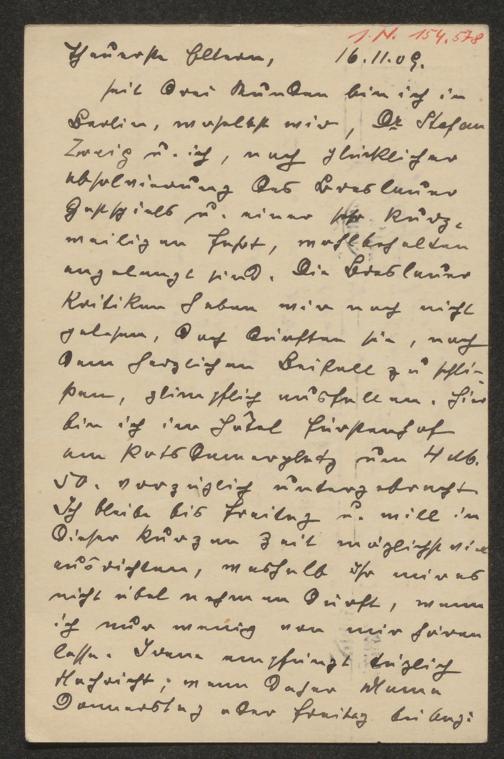 J.N. 154.578
Theuerste Eltern, 16.11.09.
seit drei Stunden bin ich in
Berlin, woselbst wir, Dr Stefan
Zweig u. ich, nach glücklicher
Absolvierung des Breslauer
Gastspiels u. einer sehr kurz-
weiligen Fahrt, wohlbehalten
angelangt sind. Die Breslauer
Kritiken haben wir noch nicht
gelesen, doch dürften sie, nach
dem herzlichen Beifall zu schlie-
ßen, glimpflich ausfallen. Hier
bin ich im Hôtel Fürstenhof
am Potsdamerplatz um 4 Mk.
50. vorzüglich untergebracht
Ich bleibe bis Freitag u. will in
dieser kurzen Zeit möglichst viel
ausrichten, weshalb Ihr mir es
nicht übel nehmen dürft, wenn
ich nur wenig von mir hören
lasse. Irene empfängt täglich
Nachricht; wenn daher Mama
Donnerstag oder Freitag bei